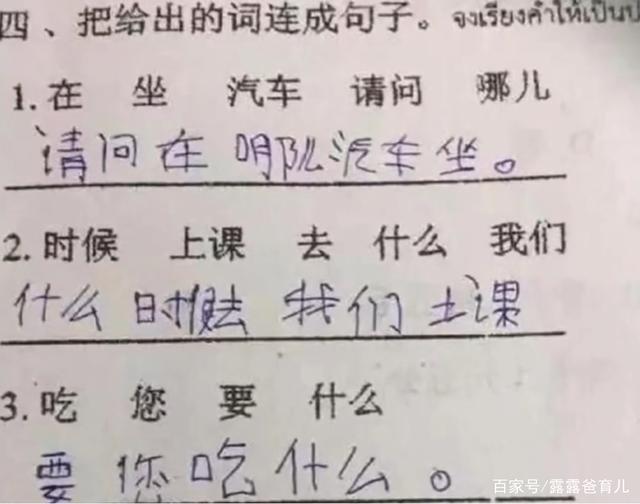 四、把给出的词连成句子。จงเรียงคำให้เป็นป
1. 在 坐 汽车 请问 哪儿
请问在 哪儿汽车坐。
2. 时候 上课 去 什么 我们
什么 时候去 我们 上课
3. 吃 您 要 什么
要 您吃什么。
百家号/露露爸育儿